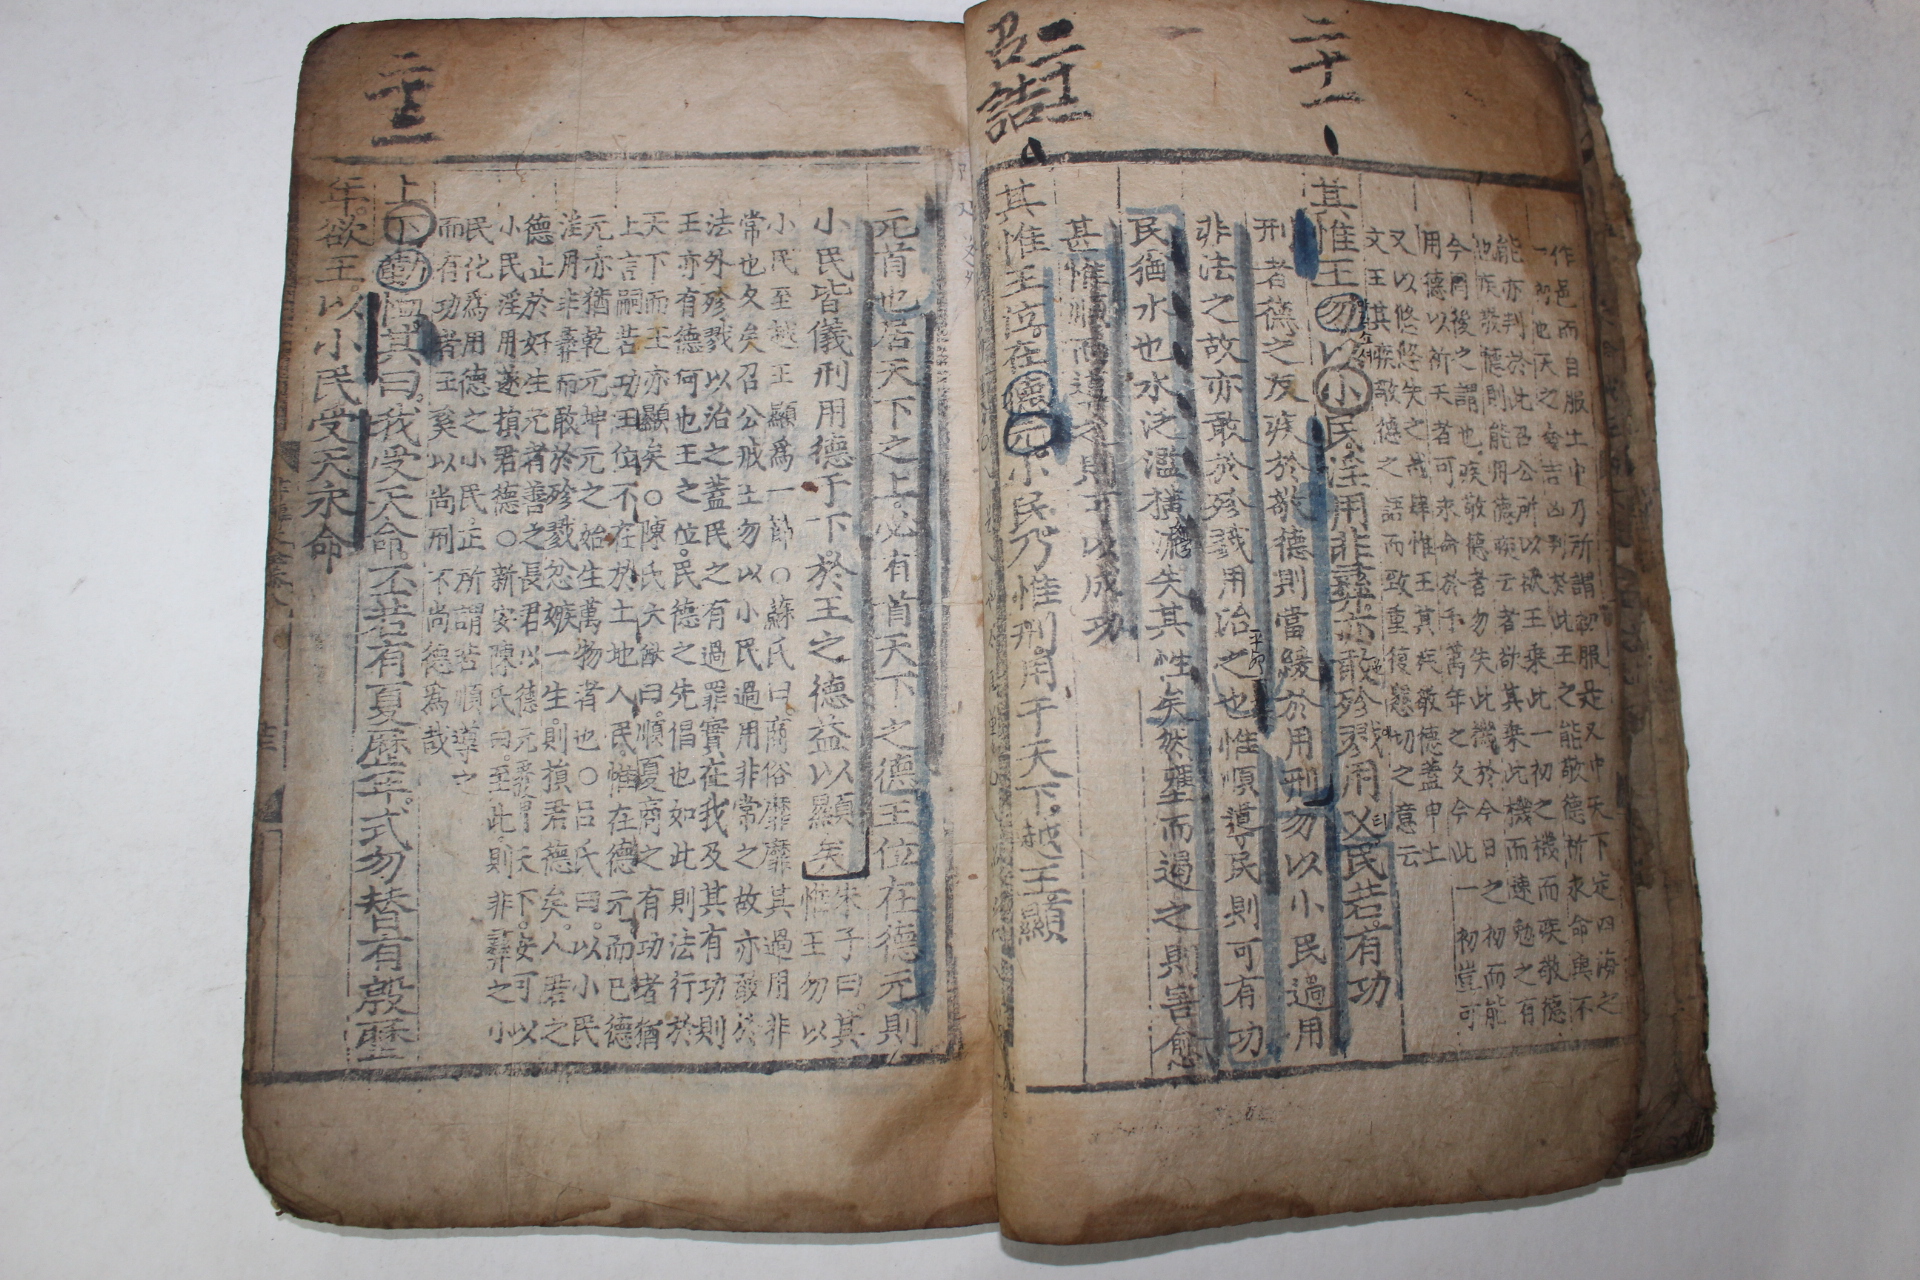 二十一
二十二
召誥
作邑而自服土中乃所謂初服是又中天下定四海之
一初也天之命吉凶判於此王之能敬德祈求命與不
能亦判於此召公所以欲王乘此一初之機而疾敬德
也疾敬德則能用德
今日後之謂也疾敬德者勿失此機於今日之初而能
用德以祈天者可求命於千萬年之久今此一初豈可
又以悠悠失之哉肆惟王其疾敬德蓋申上
文王其疾敬德之語而致重復懇切之意云
其惟王勿以小民淫用非彝亦敢殄戮用乂民若有功
刑者德之反疾於敬德則當緩於用刑勿以小民過用
非法之故亦敢於殄戮用治之也惟順導民則可有功
民猶水也水泛濫橫流失其性矣然壅而遏之則害愈
甚惟順而導之則可以成功
其惟王位在德元小民乃惟刑用于天下越王顯
元首也居天下之上必有首天下之德王位在德元則
小民皆儀刑用德于下於王之德益以顯矣
朱子曰其惟王勿以
小民至越王顯爲一節○蘇氏曰商俗靡靡其過用非
常也久矣召公戒王勿以小民過用非常之故亦敢於
法外殄戮以治之蓋民之有過罪實在我及其有功則
王亦有德何也王之位民德之先倡也如此則法行於
天下而王亦顯矣○陳氏大猷曰順夏商之有功者猶
上言嗣若功王位不在於土地人民惟在德元而已德
元亦猶乾元坤元之始生萬物者也○呂氏曰以小民
淫用非彝而敢於殄戮忽嫉一生則損君德矣人君之
德止於好生元者善之長君以德元覆冒天下安可以
小民淫用遂損君德○新安陳氏曰至此則非彝之小
民化爲用德之小民正所謂若順導之
而有功者王奚以尚刑不尚德爲哉
上下勤恤其曰我受天命丕若有夏歷年式勿替有殷歷
年欲王以小民受天永命